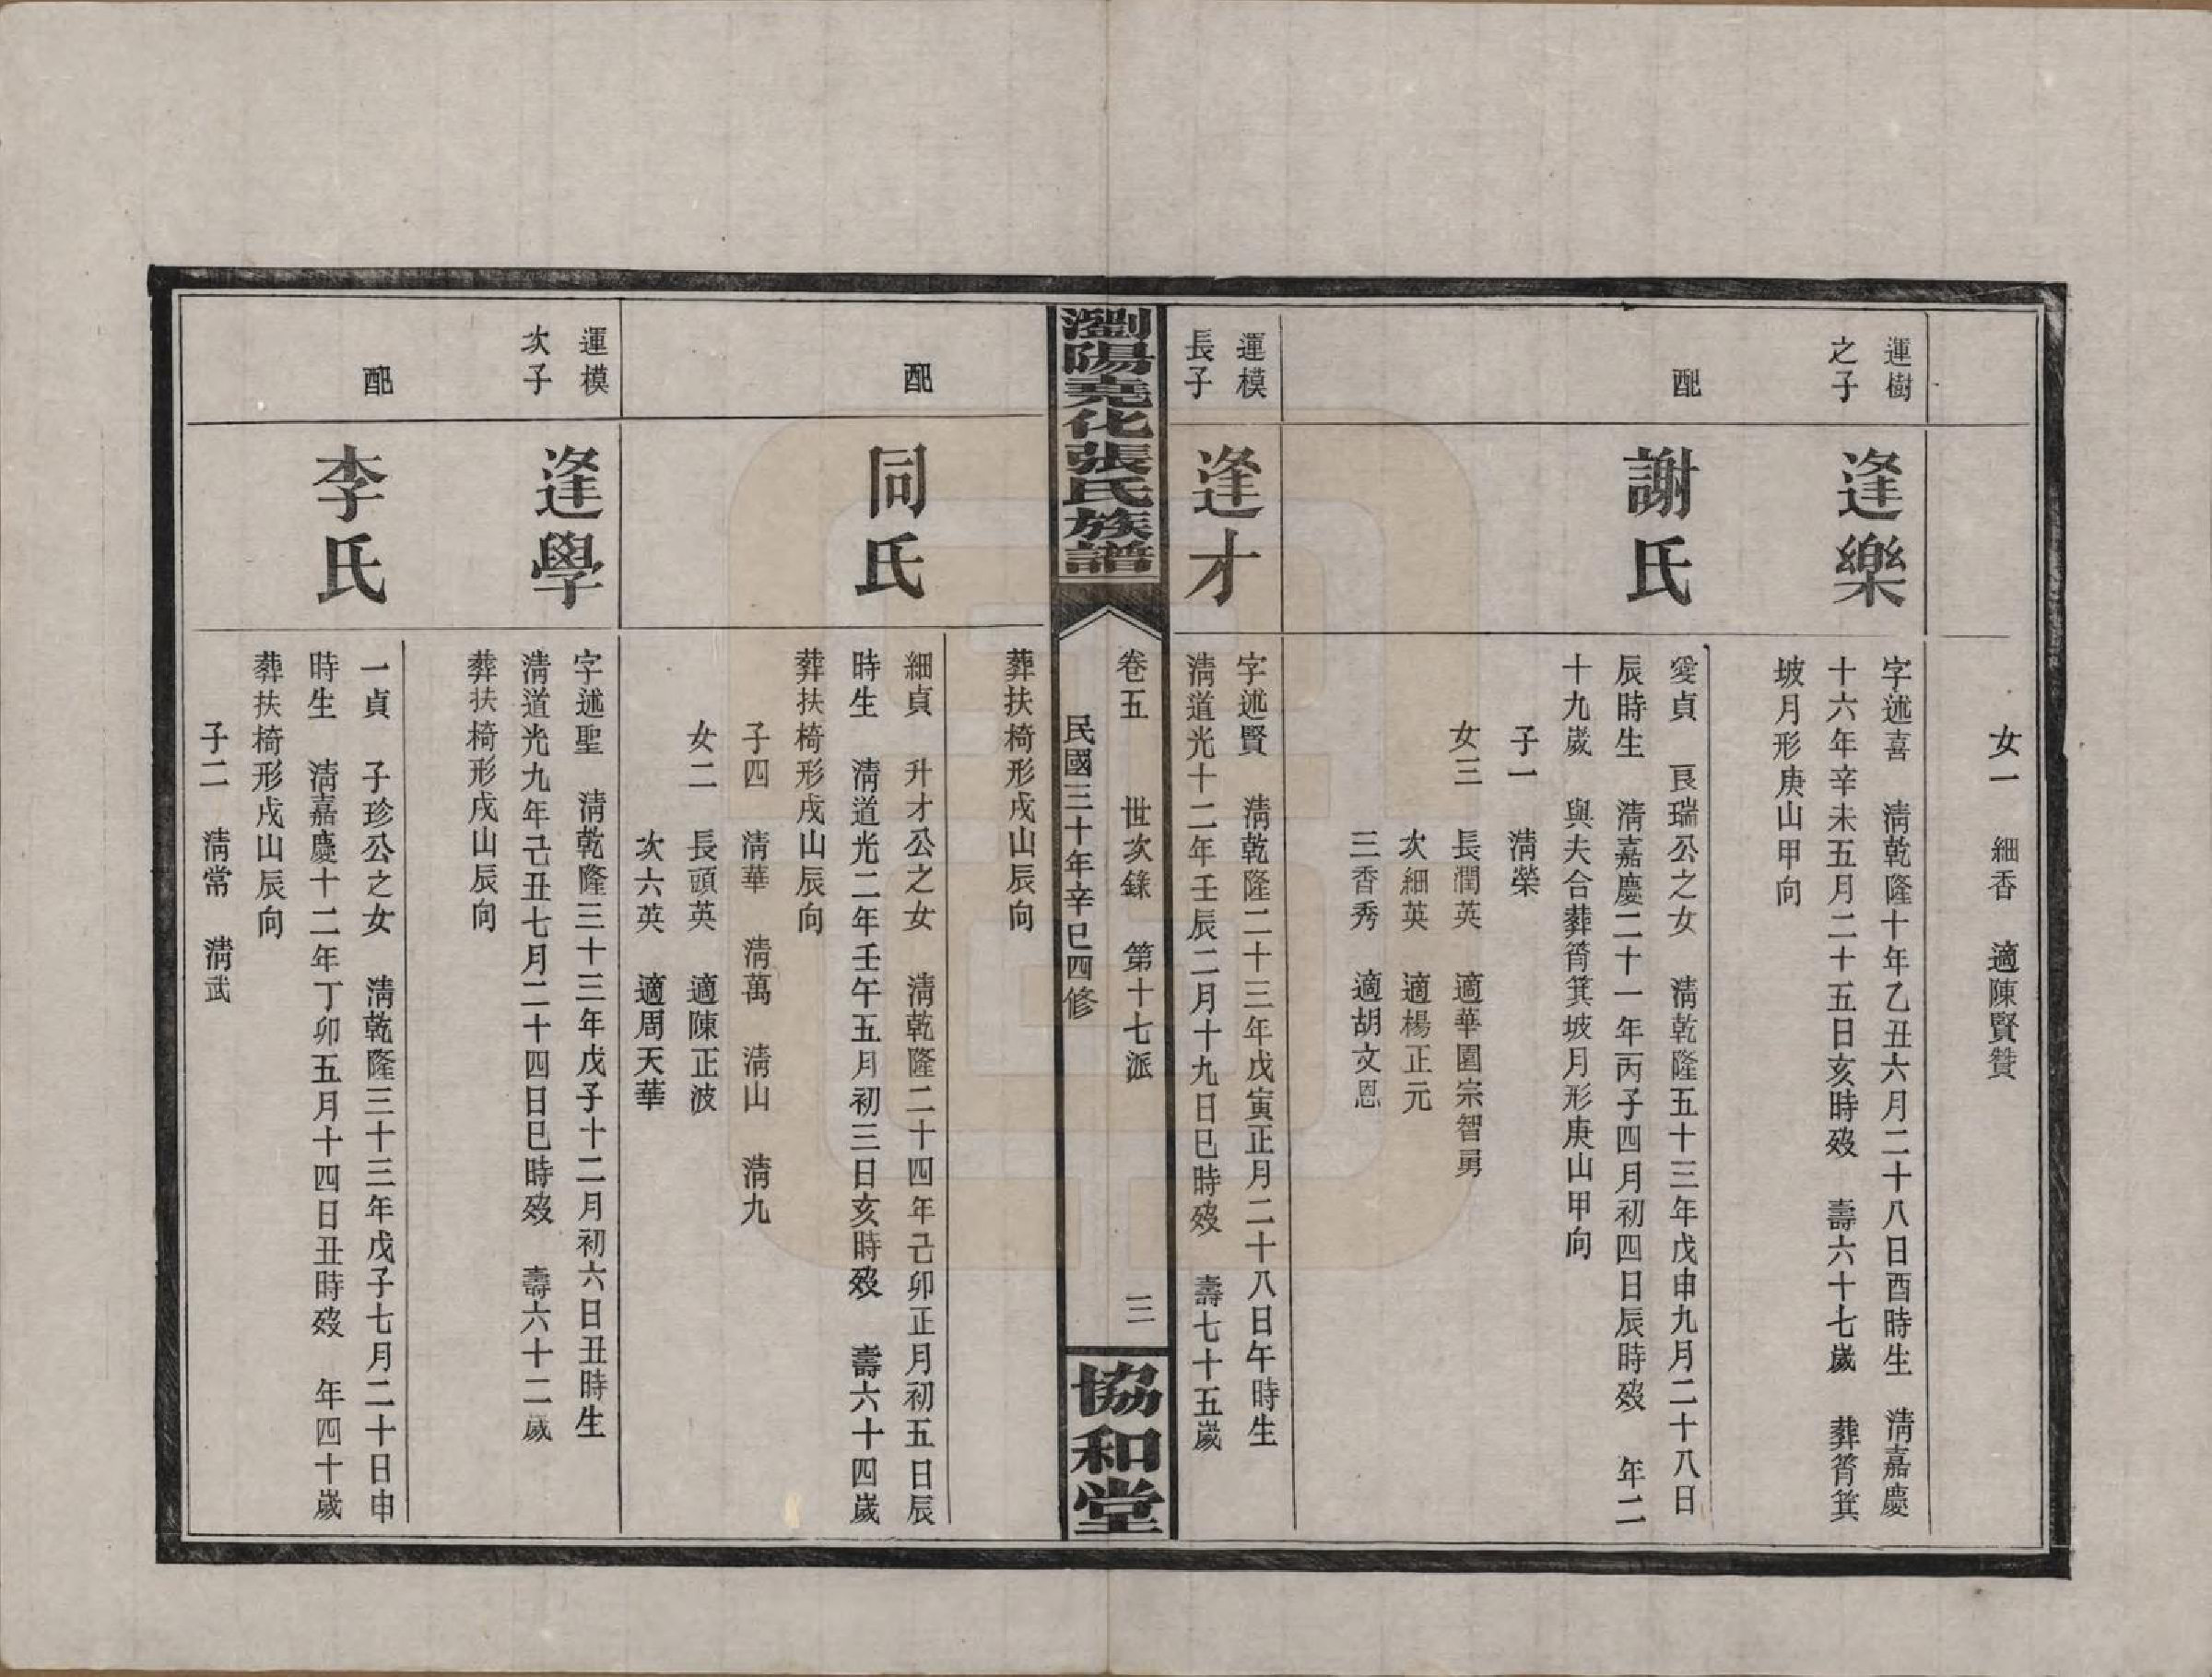 女一　細香　適陳賢贊
運樹
之子
逢樂
字述喜　淸乾隆十年乙丑六月二十八日酉時生　淸嘉慶
十六年辛未五月二十五日亥時歿　壽六十七歲　葬筲箕
坡月形庚山甲向
配
謝氏
愛貞　良瑞公之女　淸乾隆五十三年戊申九月二十八日
辰時生　淸嘉慶二十一年丙子四月初四日辰時歿　年二
十九歲　與夫合葬筲箕坡月形庚山甲向
子一　淸榮
女三　長潤英　適華園宗智勇
次細英　適楊正元
三香秀　適胡文恩
運模
長子
逢才
字述賢　淸乾隆二十三年戊寅正月二十八日午時生
淸道光十二年壬辰二月十九日巳時歿　壽七十五歲
瀏陽堯化張氏族譜
卷五　世次錄　第十七派　三
民國三十年辛巳四修
協和堂
葬扶椅形戌山辰向
配
同氏
細貞　升才公之女　淸乾隆二十四年己卯正月初五日辰
時生　淸道光二年壬午五月初三日亥時歿　壽六十四歲
葬扶椅形戌山辰向
子四　淸華　淸萬　淸山　淸九
女二　長頭英　適陳正波
次六英　適周天華
運模
次子
逢學
字述聖　淸乾隆三十三年戊子十二月初六日丑時生
淸道光九年己丑七月二十四日巳時歿　壽六十二歲
葬扶椅形戌山辰向
配
李氏
一貞　子珍公之女　淸乾隆三十三年戊子七月二十日申
時生　淸嘉慶十二年丁卯五月十四日丑時歿　年四十歲
葬扶椅形戌山辰向
子二　淸常　淸武